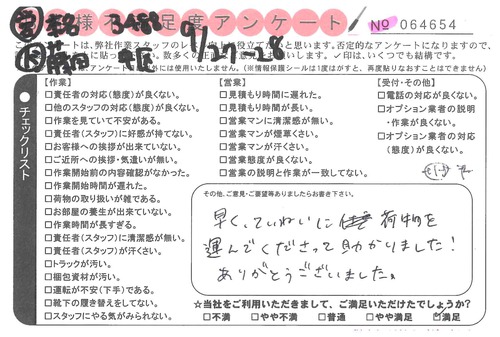 お客様満足度アンケート No 064654
9/27-28
アンケートは、弊社作業スタッフの
役立てたいと思います。否定的なアンケートになりますので、
いくつでも結構です。
には使用いたしません。(※情報保護シールは1度はがすと、再度貼りなおすことはできません)
チェックリスト
【作業】
□責任者の対応(態度)が良くない。
□他のスタッフの対応(態度)が良くない。
□作業を見ていて不安がある。
□責任者(スタッフ)に好感が持てない。
□お客様への挨拶が出来ていない。
□ご近所への挨拶・気遣いが無い。
□作業開始前の内容確認がなかった。
□作業開始時間が遅れた。
□荷物の取り扱いが雑である。
□お部屋の養生が出来ていない。
□作業時間が長すぎる。
□責任者(スタッフ)に清潔感が無い。
□責任者(スタッフ)が汗くさい。
□トラックが汚い。
□梱包資材が汚い。
□運転が不安(下手)である。
□靴下の履き替えをしてない。
□スタッフにやる気がみられない。
【営業】
□見積もり時間に遅れた。
□見積もり時間が長い。
□営業マンに清潔感が無い。
□営業マンが煙草くさい。
□営業マンが汗くさい。
□営業態度が良くない。
□営業の説明と作業が一致してない。
【受付・その他】
□電話の対応が良くない。
□オプション業者の説明
・作業が良くない。
□オプション業者の対応
(態度)が良くない。
その他、ご意見・ご要望等ありましたらお書き下さい。
早く、ていねいに荷物を
運んでくださって助かりました!
ありがとうございました。
☆当社をご利用いただきまして、ご満足いただけたでしょうか?
□不満 □やや不満 □普通 □やや満足 ☑満足